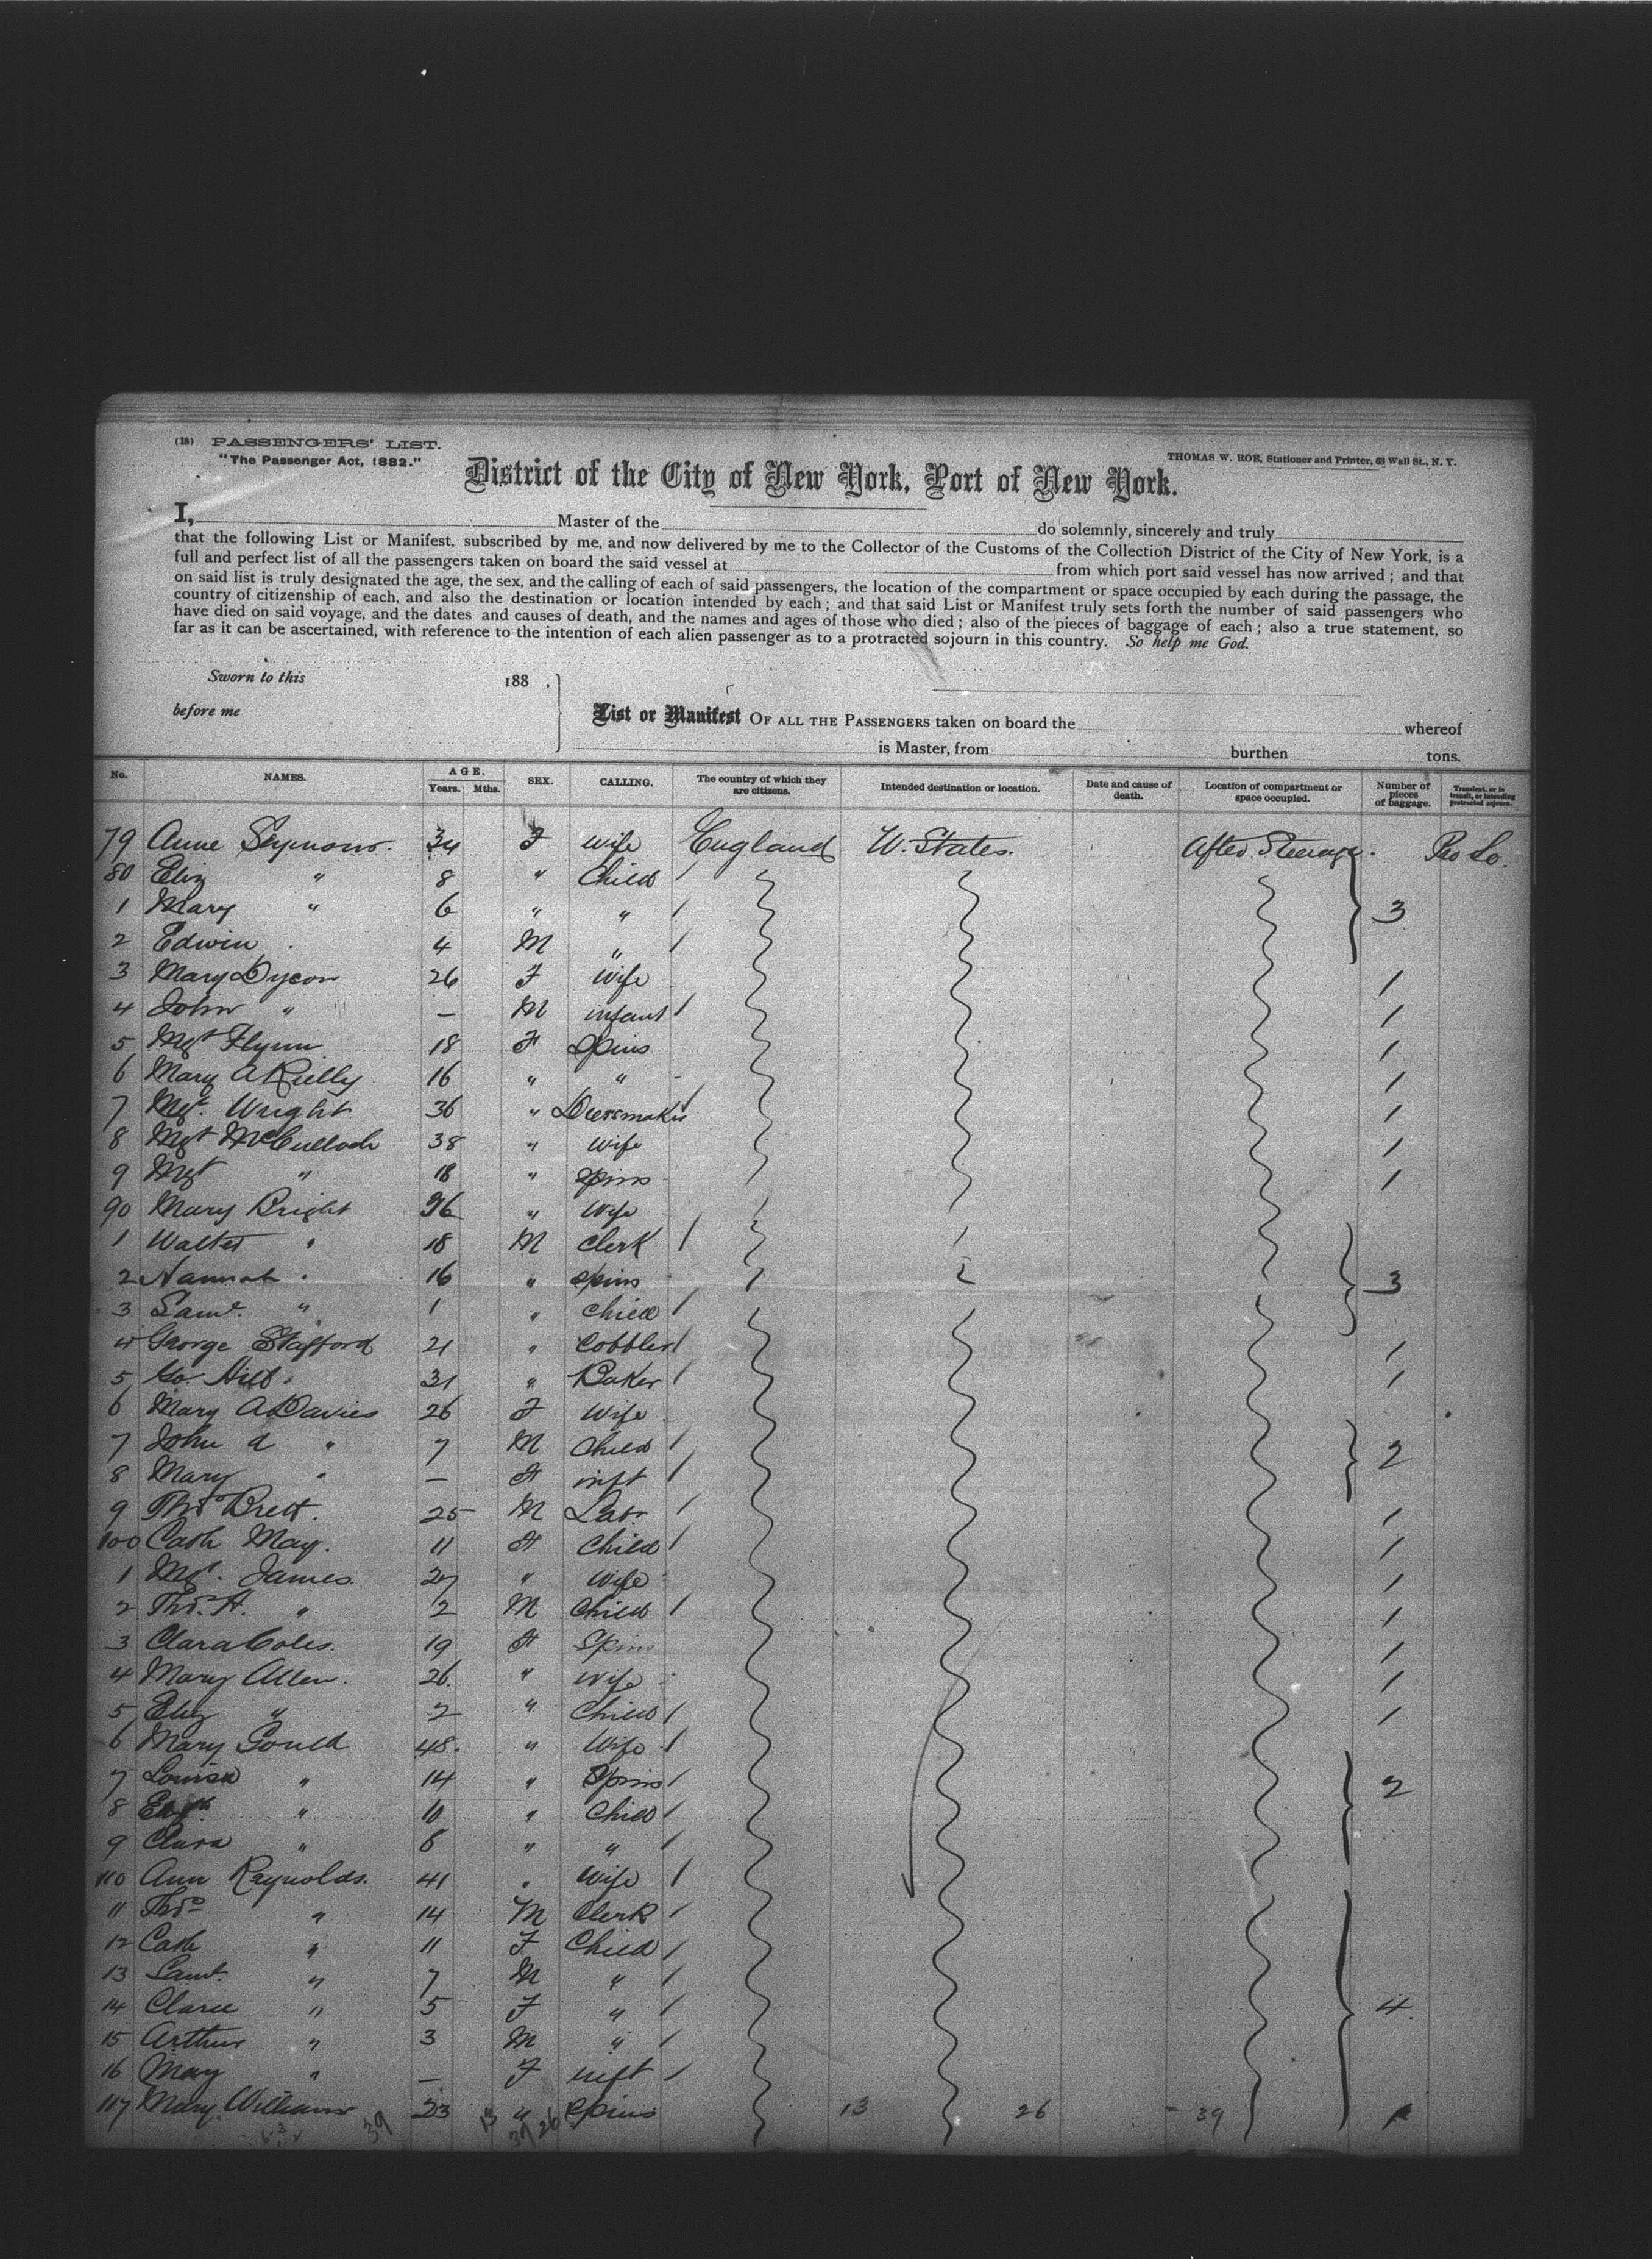 (18) PASSENGERS' LIST.
"The Passenger Act, 1882."
THOMAS W. ROE, Stationer and Printer, 63 Wall St., N. Y.
District of the City of New York, Port of New York.
I, Master of the do solemnly, sincerely and truly
that the following List or Manifest, subscribed by me, and now delivered by me to the Collector of the Customs of the Collection District of the City of New York, is a
full and perfect list of all the passengers taken on board the said vessel at from which port said vessel has now arrived; and that
on said list is truly designated the age, the sex, and the calling of each of said passengers, the location of the compartment or space occupied by each during the passage, the
country of citizenship of each, and also the destination or location intended by each; and that said List or Manifest truly sets forth the number of said passengers who
have died on said voyage, and the dates and causes of death, and the names and ages of those who died; also of the pieces of baggage of each; also a true statement, so
far as it can be ascertained, with reference to the intention of each alien passenger as to a protracted sojourn in this country. So help me God.
Sworn to this 188 .
before me
List or Manifest OF ALL THE PASSENGERS taken on board the whereof
is Master, from burthen tons.
No. NAMES. AGE. Years. Mths. SEX. CALLING. The country of which they are citizens. Intended destination or location. Date and cause of death. Location of compartment or space occupied. Number of pieces of baggage. Transient, or in transit, or intending protracted sojourn.
79 Anne Seymour. 34 F wife England W. States. After Steerage. Pro So.
80 Eliz " 8 " Child
1 Mary " 6 " " 3
2 Edwin . 4 M "
3 Mary Dyson 26 F Wife 1
4 John " — M infant 1
5 Mgt Flynn 18 F Spins 1
6 Mary A Reilly 16 " " 1
7 Mgt. Wright 36 " Dressmaker 1
8 Mgt McCulloch 38 " Wife 1
9 Mgt " 18 " Spins 1
90 Mary Bright 36 " Wife
1 Walter " 18 M Clerk
2 Hannah . 16 " Spins 3
3 Saml. " 1 " Child
4 George Stafford 21 " Cobbler 1
5 Go. Hill. 31 " Baker 1
6 Mary A Davies 26 F Wife
7 John A " 7 M Child 2
8 Mary " — F inft
9 Thos Brett. 25 M Labr 1
100 Cath May. 11 F Child 1
1 Mgt. James. 27 " Wife 1
2 Thos. H. " 2 M Child 1
3 Clara Coles. 19 F Spins 1
4 Mary Allen. 26. " Wife 1
5 Eliz " 2 " Child 1
6 Mary Gould 48. " Wife
7 Louisa " 14 " Spins 2
8 " 10 " Child
9 Clara " 6 " "
110 Ann Reynolds. 41 " Wife
11 Thos " 14 M Clerk
12 Cath " 11 F Child
13 Saml. " 7 M "
14 " 5 F " 4.
15 Arthur " 3 M "
16 May " — F inft
117 Mary Williams 23 " Spins 13 26 39 1
39 13 39 26